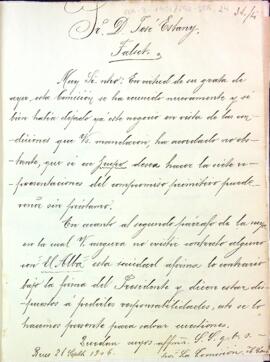 Sr. D. José Estany.
Salset.
Muy Sr. ntro: En virtud de su grata de
ayer, esta Comisión se ha reunido nuevamente y si
bien había dejado ya este negocio en vista de las con-
diciones que Vs. mandaron, ha acordado no obs-
tante, que si en Grupo desea hacer las siete re-
presentaciones del compromiso primitivo puede
venir sin préstamo.
En cuanto al segundo párrafo de la suya
en la cual V. asegura no existir contrato alguno
con El Alba esta sociedad afirma lo contrario
bajo la firma del Presidente y dicen estar dis-
puestos á pedirles responsabilidades, ésto se lo
hacemos presente para salvar cuestiones.
Quedan suyos affmos. S. S. q. b. s. m.
Reus 21 Septbre 1906.
La Comisión